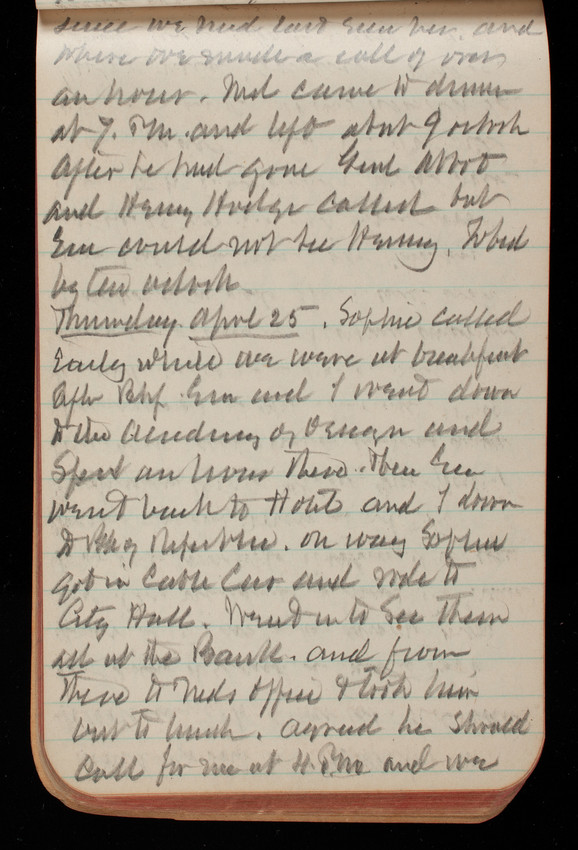 since we had last seen her. and
where we made a call of over
an hour. Ned came to dinner
at 7. P.M. and left about 9 oclock
After he had gone Genl Abbot
and Henry Hodge called but
Em could not see Henry. To bed
by ten oclock.
Thursday April 25. Sophie called
Early while we were at breakfast
After Bkf. Em and I went down
to the Academy of Design and
Spent an hour there. Then Em
went back to Hotel and I down
to Bk of Republic. on way Sophie
got in Cable Car and rode to
City Hall. Went in to see them
all at the Bank. and from
there to Neds office & took him
out to lunch. agreed he should
Call for me at 4. P.M. and we